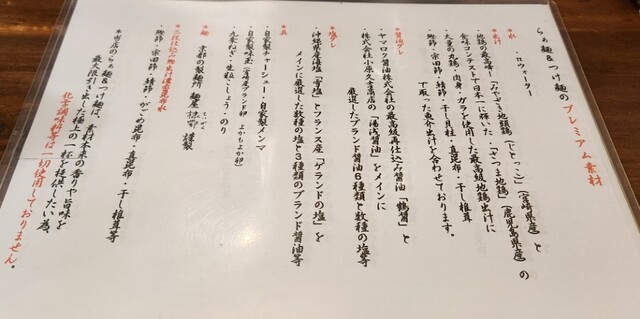 らぁ麺&つけ麺のプレミアム素材
*水
・πウォーター
*出汁
・地鶏の最高峰「みやざき地頭鶏(じとっこ)」(宮崎県産)と
食味コンテストで日本一に輝いた「さつま地鶏」(鹿児島県産)の
大量の丸鶏・肉身・ガラを使用した最高級地鶏出汁に
・鰹節・宗田節・鯖節・干し貝柱・真昆布・干し椎茸
で取った魚介出汁を合わせております。
*醤油ダレ
・ヤマロク醤油株式会社の最高級再仕込み醤油「鶴醤」と
株式会社小原久吉商店の「湯浅醤油」をメインに
厳選したブランド醤油6種類と数種の塩等
*塩ダレ
・沖縄県産海塩「雪塩」とフランス産「ゲランドの塩」を
メインに厳選した数種の塩と3種類のブランド醤油等
*具
・自家製チャーシュー・自家製メンマ
・自家製味玉(宮崎産ブランド卵 よかもよか卵)
・九条ねぎ・生粒こしょう・のり
*麺
・京都の製麺所 麺屋 棣鄂 謹製
*三段仕込み鰹出汁濃密昆布水
・鰹節・宗田節・鯖節・がごめ昆布・真昆布・干し椎茸等
*当店のらぁ麺&つけ麺は、素材本来の香りや旨味を
最大限引き出した極上の一杯を提供したい為、
化学調味料等は一切使用しておりません。